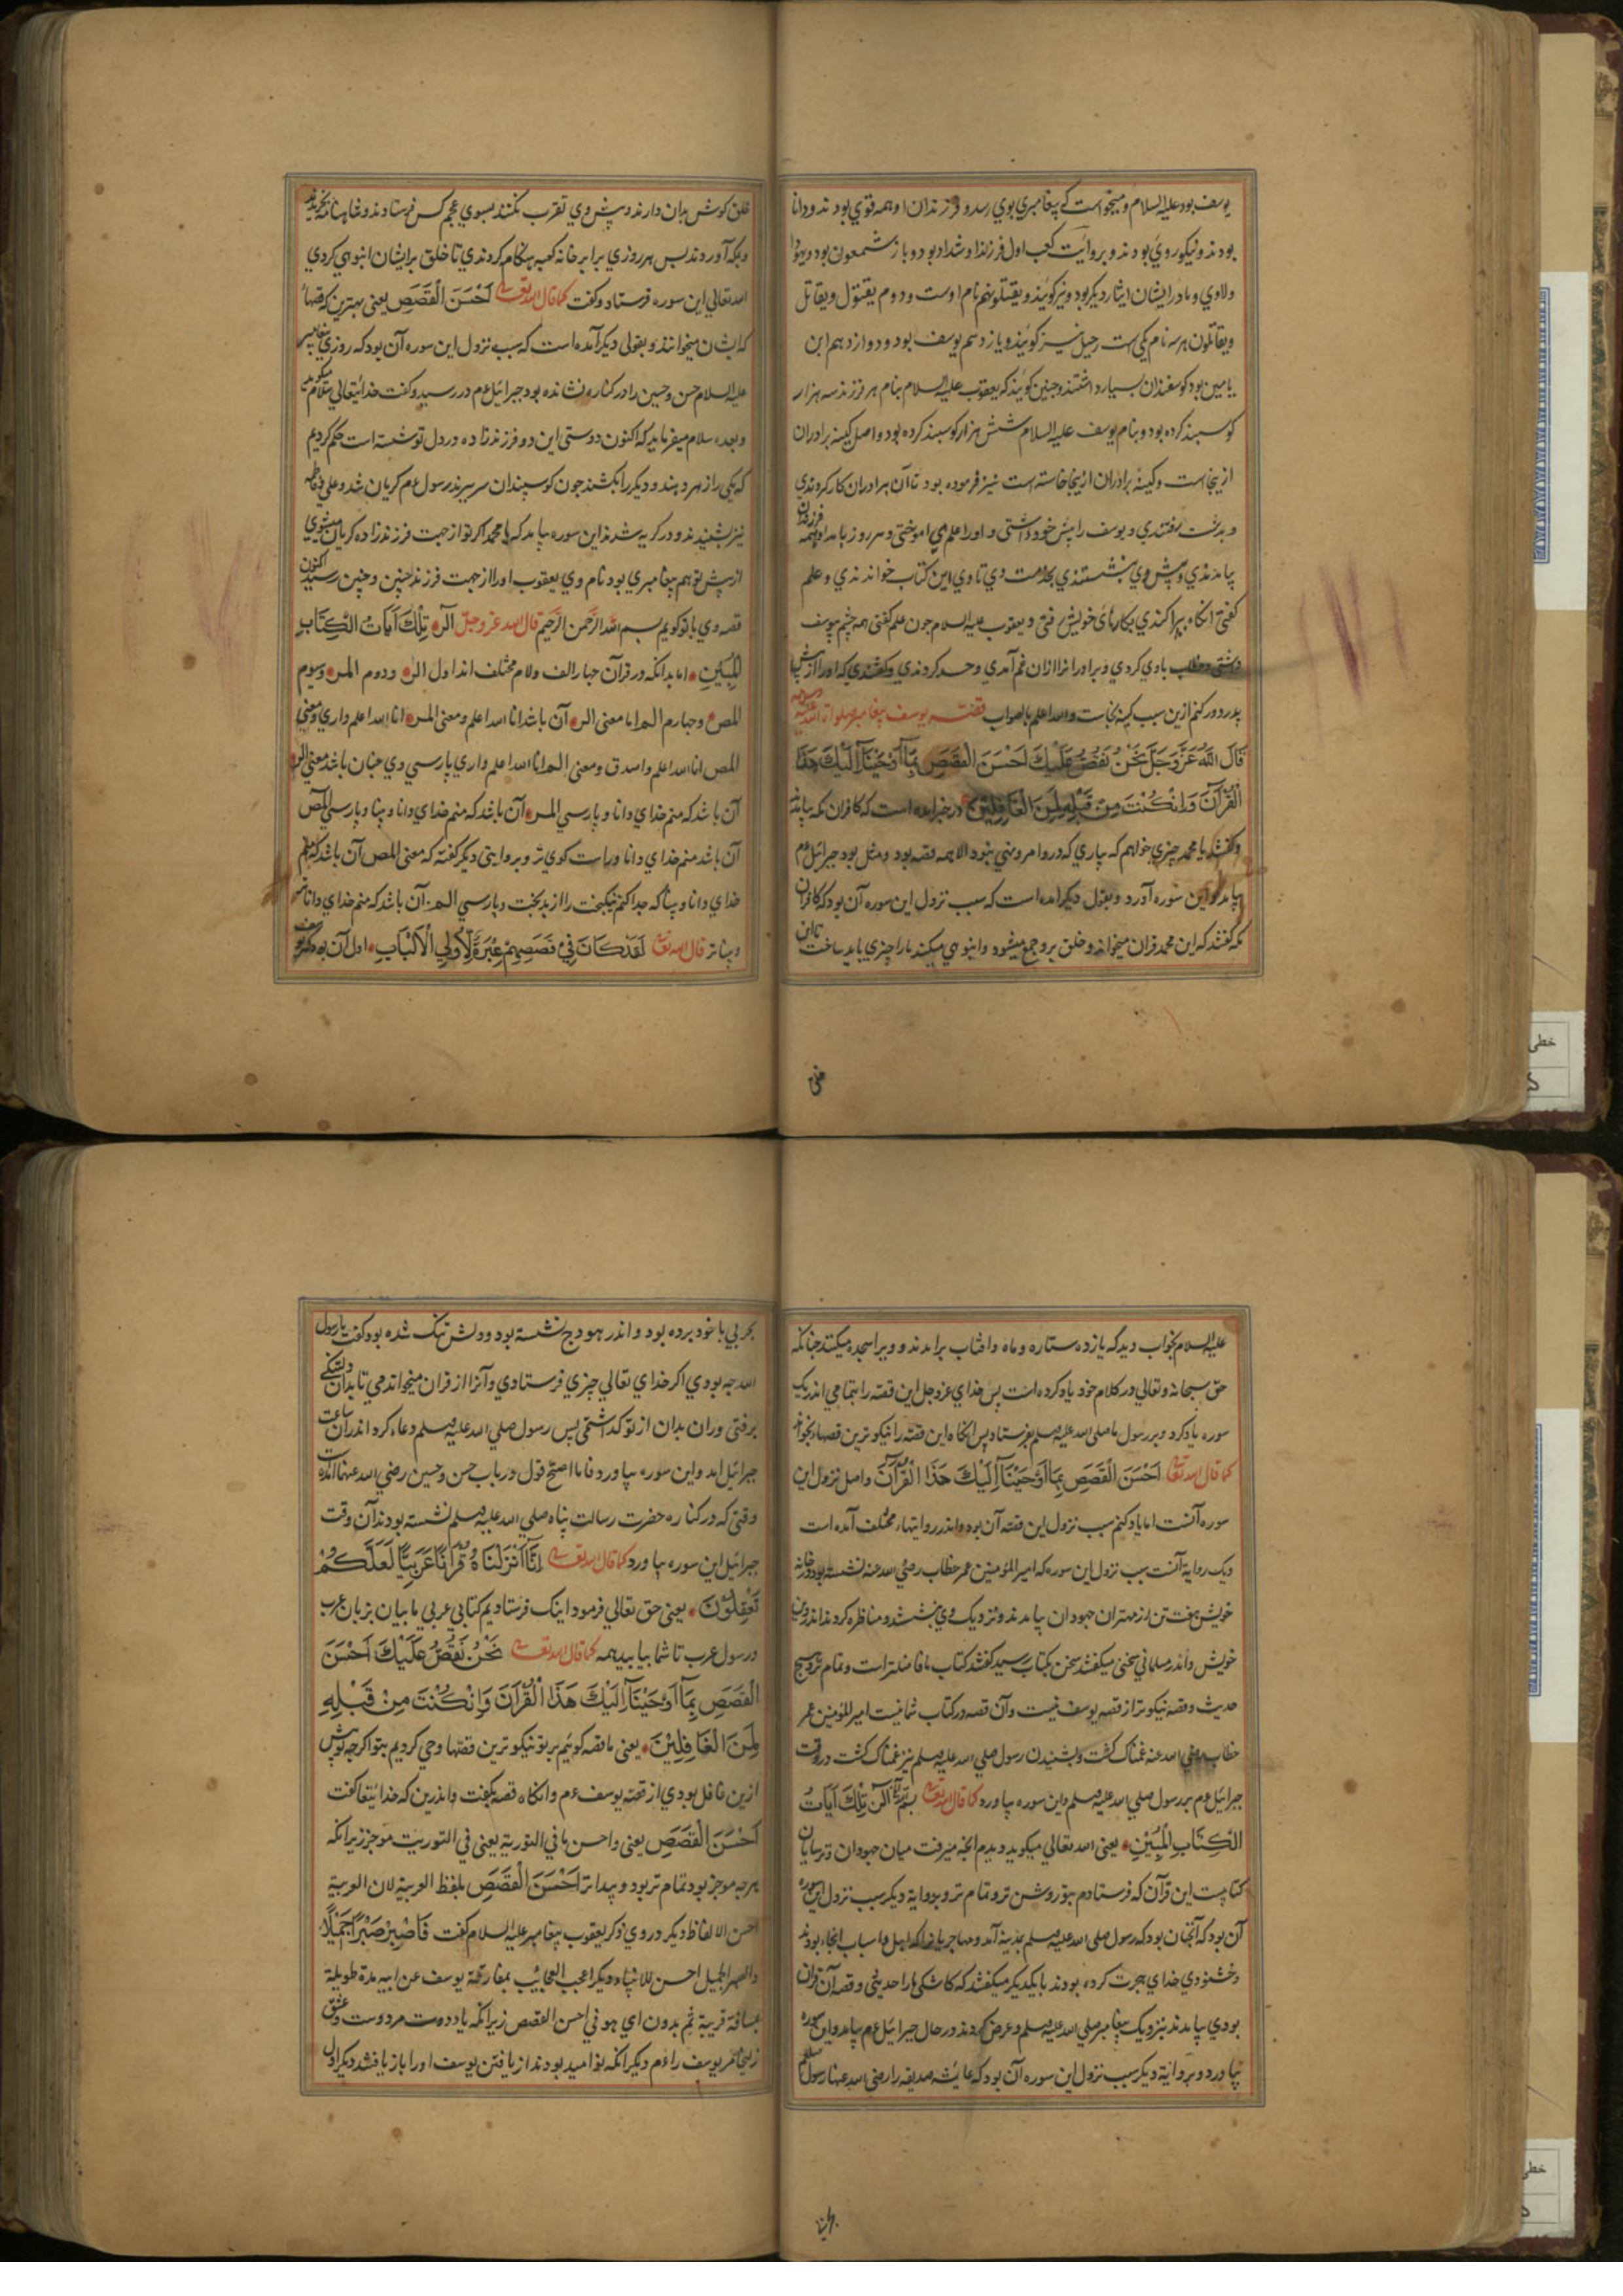 یوسف بود علیه السلام و میخواست که پیغامبری بوی رسد و فرزندان او همه قوی بودند و دانا
بودند و نیکوروی بودند و بروایت کعب اول فرزند او شداد بود دوباز شمعون بود و یهودا
ولاوی و مادر ایشان ایثار دیکر بود و نیز کویند و یقتلو بنهم نام اوست و دوم یفتول و یقاتل
ویقاتلون هر سه نام یکی است رحیل نیز کویند و یازدهم یوسف بود و دوازدهم ابن
یامین بود کوسفندان بسیار داشتند و چنین کویند که یعقوب علیه السلام بنام هر فرزند سه هزار
کوسبند کرده بود و بنام یوسف علیه السلام شش هزار کوسبند کرده بود و اصل کینه برادران
ازینجاست و کینه برادران ازینجا خاسته است نیز فرموده بود تا آن برادران کار کردندی
و بدشت رفتندی و یوسف را پیش خود داشتی و او را علم می اموختی و هر روز بامداد همه فرزندان
بیامدندی و پیش وی بنشستندی بخدمت وی تا وی این کتاب خواندندی و علم
کفتی انکاه پراکندی بکارهای خویش رفتی و یعقوب علیه السلام چون علم کفتی همه چشم بیوسف
داشتی و خطاب باوی کردی و برادرانرا ازان غم آمدی و حسد کردندی و کفتندی که او را از پیش
پدر دور کنم ازین سبب کینه بخاست والله اعلم بالصواب قصه یوسف پیغامبر صلوات الله علیه
قَالَ اللَّهُ عَزَّ وَجَلَّ نَحْنُ نَقُصُّ عَلَيْكَ اَحْسَنَ الْقَصَصِ بِمَا اَوْحَيْنَا اِلَيْكَ هَذَا
الْقُرْآنَ وَاِنْ كُنْتَ مِنْ قَبْلِهِ لَمِنَ الْغَافِلِينَ در خبر امده است که کافران مکه بیامدند
و کفتند یا محمد چیزی خواهم که بیاری که درو امر و نهی نبود الا همه قصه بود و مثل بود جبرائیل عم
بیامد و این سوره آورد و بقول دیکر امده است که سبب نزول این سوره آن بود که کافران
مکه کفتند که این محمد قران میخواند و خلق برو جمع میشود و انبوهی میکند ما را چیزی باید ساخت تا این
خلق کوش بدان دارند و پیش وی تقرب نکنند بسوی عجم کس فرستادند و شاهنامه بخریدند
و بمکه آوردند پس هر روزی برابر خانه کعبه هنکام کردندی تا خلق بر ایشان انبوهی کردی
الله تعالی این سوره فرستاد و کفت کما قال الله تعالی اَحْسَنَ الْقَصَصِ یعنی بهترین که قصهاء
که ایشان میخوانند و بقولی دیکر آمده است که سبب نزول این سوره آن بود که روزی پیغامبر
علیه السلام حسن و حسین را در کنار نشانده بود جبرائیل عم در رسید و کفت خدایتعالی سلام میکوید
و بعده سلام میفرماید که اکنون دوستی این دو فرزندزاده در دل تو نشسته است حکم کردیم
که یکی را زهر دهند و دیکر را بکشند چون کوسپندان سر ببرند رسول عم کریان شد و علی و فاطمه
نیز بشنیدند و در کریه شدند این سوره بیامد که یا محمد اکر تو از جهت فرزندزاده کریان میشوی
از پیش تو هم پیغامبری بود نام وی یعقوب او را از جهت فرزند چنین و چنین رسید اکنون
قصه وی با تو کویم بسم الله الرحمن الرحیم قال الله عز و جل الٓر تِلْكَ آيَاتُ الْكِتَابِ
الْمُبِينِ اما بدانکه در قرآن چهار الف و لام مختلف اند اول الر و دوم المر و سیوم
المص و چهارم الم اما معنی الر آن باشد انا الله اعلم و معنی المر انا الله اعلم واری و معنی
المص انا الله اعلم واصدق و معنی الم انا الله اعلم واری پارسی وی چنان باشد معنی الر
آن باشد که منم خدای دانا و پارسی المر آن باشد که منم خدای دانا و بینا و پارسی المص
آن باشد منم خدای دانا و راست کوی تر و بروایتی دیکر کفته که معنی المص آن باشد که منم
خدای دانا و بینا که جدا کنم نیکبخت را از بدبخت و پارسی الم آن باشد که منم خدای داناتر
و بیناتر قال الله تعالی لَقَدْ كَانَ فِي قَصَصِهِمْ عِبْرَةٌ لِاُولِي الْاَلْبَابِ اول آن بود که یوسف
علیه السلام بخواب دید که یازده ستاره و ماه و افتاب برامدند و ویرا سجده میکنند چنانکه
حق سبحانه و تعالی در کلام خود یاد کرده است پس خدای عز و جل این قصه را بتمامی اندر یک
سوره یاد کرد و بر رسول ما صلی الله علیه وسلم بفرستاد پس انکاه این قصه را نیکوترین قصها بخواند
کما قال الله تعالی اَحْسَنَ الْقَصَصِ بِمَا اَوْحَيْنَا اِلَيْكَ هَذَا الْقُرْآنَ و اصل نزول این
سوره آنست اما یاد کنم سبب نزول این قصه آن بود و اندر روایتها مختلف آمده است
ویک روایة آنست سبب نزول این سوره که امیرالمؤمنین عمر خطاب رضی الله عنه نشسته بود در خانه
خویش هفت تن از مهتران جهودان بیامدند و نزدیک وی بنشستند و مناظره کردند اندر دین
خویش و اندر مسلمانی سخن میکفتند سخن بکتاب رسید کفتند کتاب ما فاضلتر است و تمام تر و هیچ
حدیث و قصه نیکوتر از قصه یوسف نیست و آن قصه در کتاب شما نیست امیرالمؤمنین عمر
خطاب رضی الله عنه غمناک کشت و بشنیدن رسول صلی الله علیه وسلم نیز غمناک کشت در وقت
جبرائیل عم بر رسول صلی الله علیه وسلم این سوره بیاورد کما قال الله تعالی الٓر تِلْكَ آيَاتُ
الْكِتَابِ الْمُبِينِ یعنی الله تعالی میکوید دیدم انچه میرفت میان جهودان و ترسایان
کتابیست این قرآن که فرستادم بتو روشن تر و تمام تر و بروایة دیکر سبب نزول این سوره
آن بود که آنچنان بود که رسول صلی الله علیه وسلم بمدینه آمد و مهاجریان را که اهل و اسباب انجا بودند
و خشنودی خدای هجرت کرده بودند با یکدیکر میکفتند که کاشکی ما را حدیثی و قصه آن قران
بودی بیامدند نزدیک پیغامبر صلی الله علیه وسلم و عرض کردند در حال جبرائیل عم بیامد و این سوره
بیاورد و بروایة دیکر سبب نزول این سوره آن بود که عایشه صدیقه را رضی الله عنها رسول صلعم
بحربی با خود برده بود و اندر هودج نشسته بود و دلش تنک شده بود کفت یا رسول
الله چه بودی اکر خدای تعالی چیزی فرستادی و آنرا از قران میخواندمی تا بدان دلتنکی
برفتی وران بدان از تو کذاشتمی پس رسول صلی الله علیه وسلم دعا کرد اندر آن ساعت
جبرائیل امد و این سوره بیاورد فاما اصح قول در باب حسن و حسین رضی الله عنهما امده است
وقتی که در کناره حضرت رسالت پناه صلی الله علیه وسلم نشسته بودند آن وقت
جبرائیل این سوره بیاورد کما قال الله تعالی اِنَّا اَنْزَلْنَاهُ قُرْآنًا عَرَبِيًّا لَعَلَّكُمْ
تَعْقِلُونَ یعنی حق تعالی فرمود اینک فرستادیم کتابی عربی با بیان بزبان عرب
و رسول عرب تا شما بیابید همه کما قال الله تعالی نَحْنُ نَقُصُّ عَلَيْكَ اَحْسَنَ
الْقَصَصِ بِمَا اَوْحَيْنَا اِلَيْكَ هَذَا الْقُرْآنَ وَاِنْ كُنْتَ مِنْ قَبْلِهِ
لَمِنَ الْغَافِلِينَ یعنی ما قصه کوئیم بر تو نیکوترین قصها وحی کردیم بتو اکرچه تو پیش
ازین غافل بودی از قصه یوسف عم و انکاه قصه بکفت و اندرین که خدایتعا کفت
اَحْسَنَ الْقَصَصِ یعنی واحسن ما فی التوریة یعنی فی التوریت موجز زیرانکه
هرچه موجز بود تمام تر بود و پیداتر اَحْسَنَ الْقَصَصِ بلفظ العربیة لان العربیة
احسن الالفاظ و دیکر در وی ذکر یعقوب پیغامبر علیه السلام کفت فَاصْبِرْ صَبْرًا جَمِيلًا
والصبر الجمیل احسن للاشیاء و دیکر اعجب العجائب بمفارقة یوسف عن ابیه مدة طویلة
بمسافة قریبة ثم بدون ای هو فی احسن القصص زیرانکه یاد دوست مر دوست و عشق
زلیخا مر یوسف را عم و دیکر انکه نوامید بودند از یافتن یوسف او را باز یافتند و دیکر اول
خطی
خطی